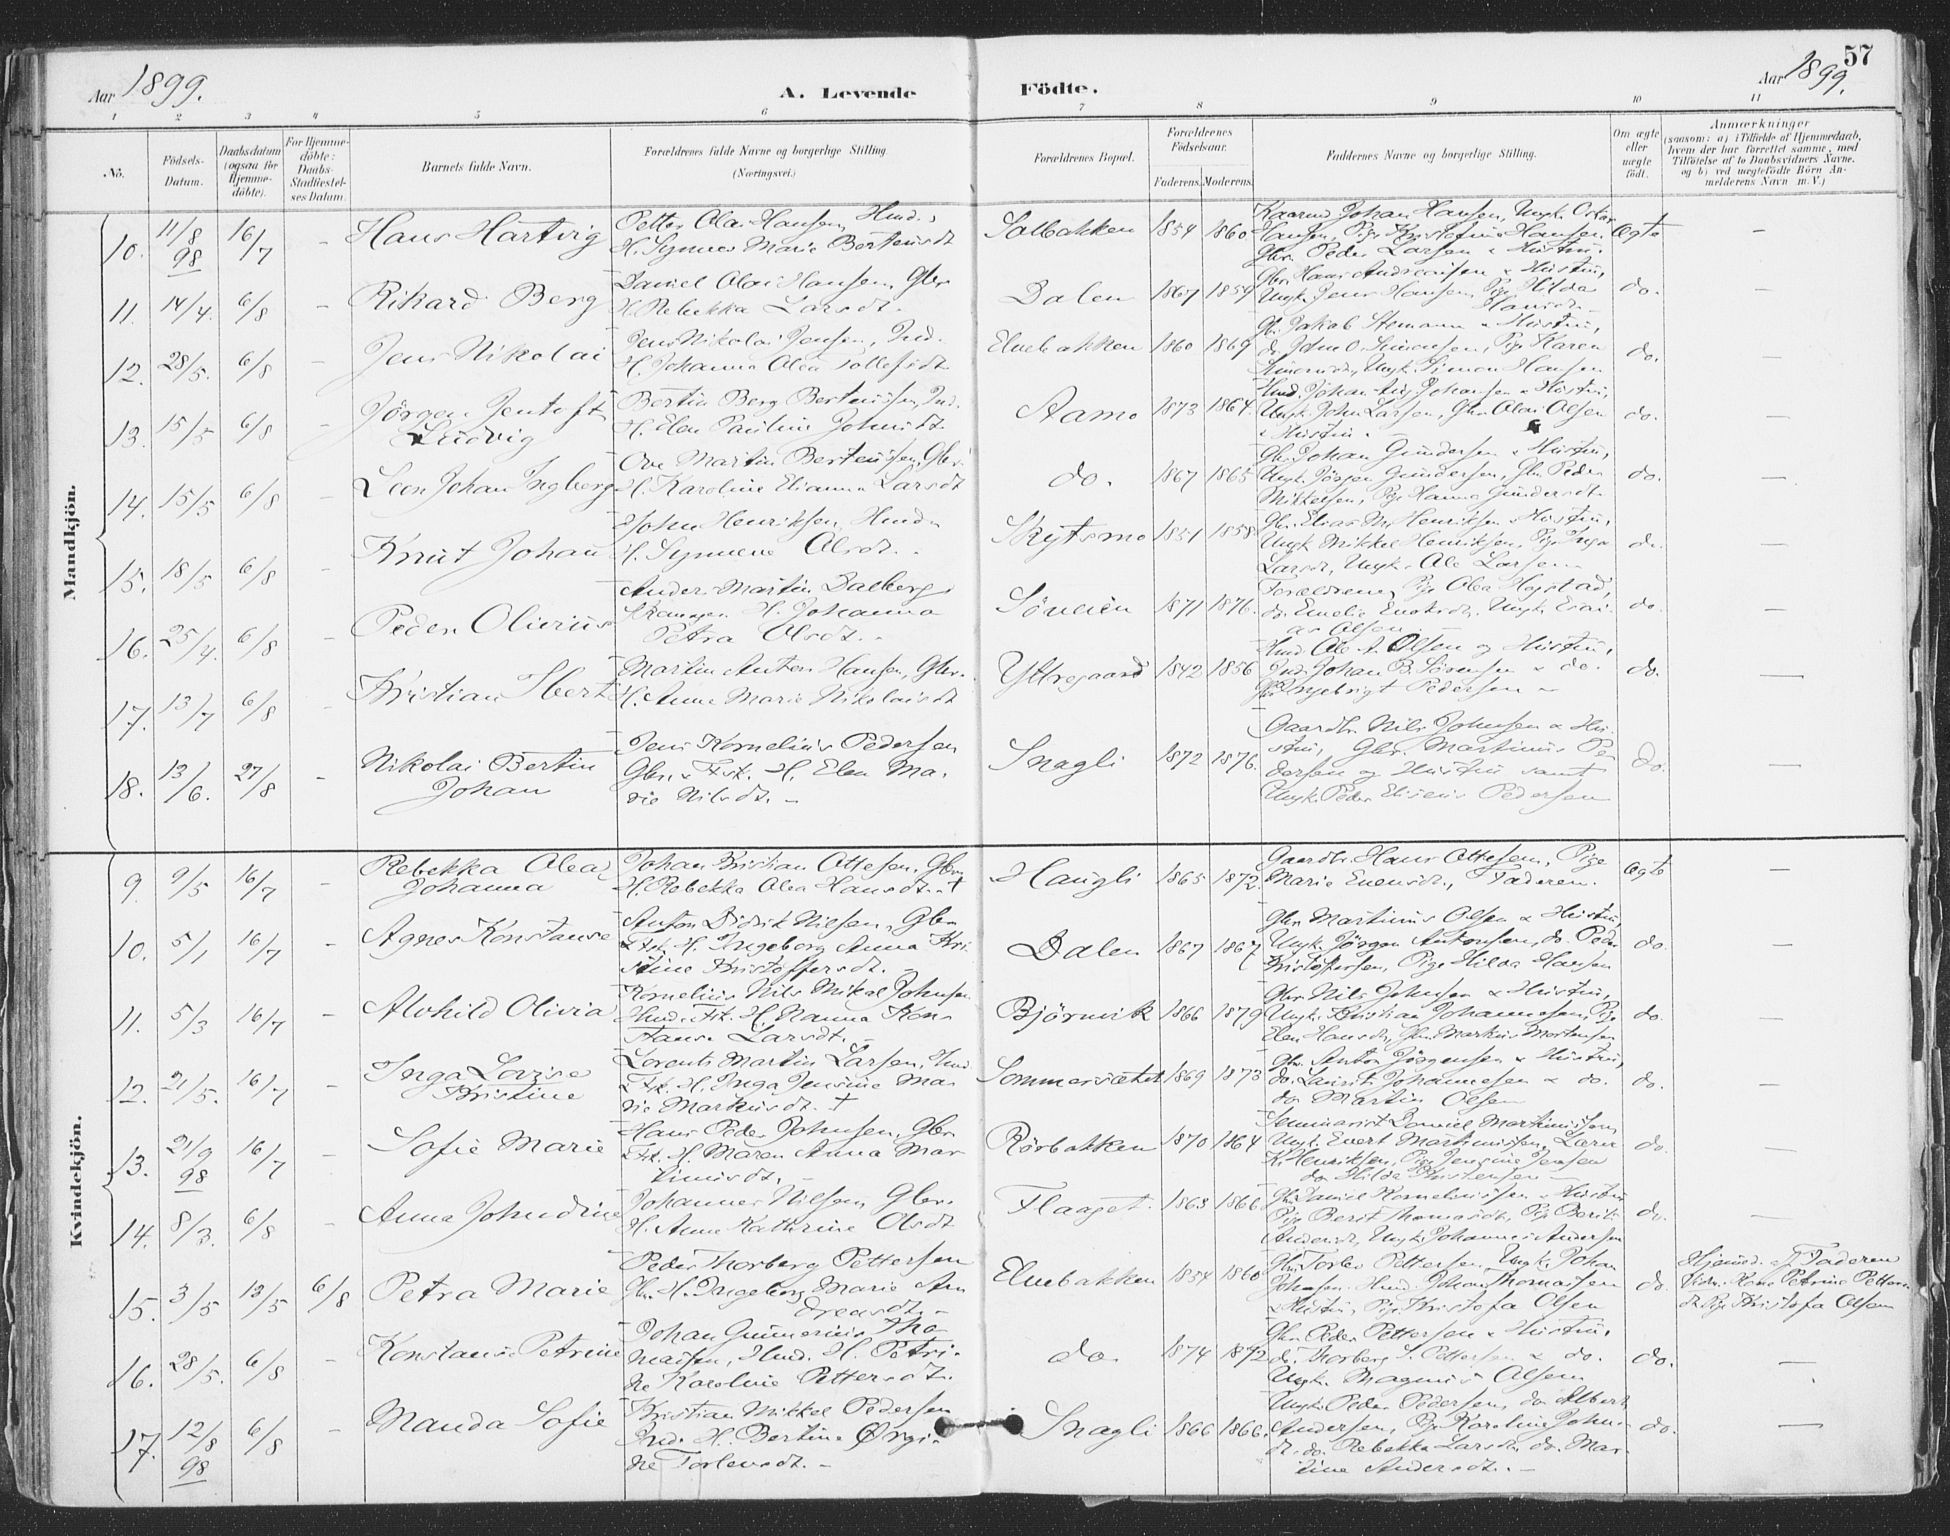 57
Aar 1899. A. Levende Födte. Aar 1899.
1 2 3 4 5 6 7 8 9 10 11
No.
Födsels-Datum.
Daabsdatum (ogsaa for Hjemme-döbte).
For Hjemme-döbte: Daabs-Stadfæstel-ses Datum.
Barnets fulde Navn.
Forældrenes fulde Navne og borgerlige Stilling (Næringsvei.)
Forældrenes Bopæl.
Forældrenes Födselsaar.
Faderens. Moderens.
Faddernes Navne og borgerlige Stilling.
Om ægte eller uægte födt.
Anmærkninger
(saasom: a) i Tilfælde af Hjemmedaab, hvem der har forrettet samme, med Tilföielse af to Daabsvidners Navne. og b) ved uægtefödte Börn An-melderens Navn m. V.)
Mandkjön.
10. 11/8 98 16/7 - Hans Hartvig
Petter Olai Hansen,
H. Synnev Marie Berteusdt
Solbakken 1854 1860
Kaarmd Johan Hansen, Ungk. Oskar
Hansen, Pige Kristofine Hansen
Gbr. Peder Larsen & Hustru.
Ægte -
11. 14/4. 6/8 - Rikard Berg
Daniel Olai Hansen, Gbr.
H. Rebekka Larsdt.
Dalen 1867 1859
Gbr. Hans Andreasen & Hustru,
Ungk. Jens Hansen, Pige Hilda
Hansdt.
do. -
12. 28/5. 6/8 - Jens Nikolai
Jens Nikolai Jensen, Ind.
H. Johanna Olea Tollefsdt.
Elvebakken 1860 1869
Gbr. Jakob Stemann & Hustru,
do. John O. Simonsen, Pige Karen
Ungk. Simon Hansen
do. -
13. 15/5 6/8 - Jörgen Jentoft
Ludvig
Bertin Berg Berteussen, Ind.
H. Elen Pauline Johnsdt.
Aamo 1873 1864.
Hmd. Johan Aug. Johansen & Hustru,
Ungk. John Larsen, Gbr. Olai Olsen
& Hustru.
do. -
14. 15/5 6/8 - Leon Johan Ingberg
Ove Martin Berteussen, Gbr.
H. Karoline Elianna Larsdt
do. 1867 1865
Gbr. Johan Gundersen & Hustru,
Ungk. Jörgen Gundersen, Gbr. Peder
Mikkelsen, Pige Hanna Gundersdt.
do. -
15. 18/5 6/8 - Knut Johan
John Henriksen, Hmd.
H. Synneve Olsdt.
Skytsmo 1851 1858
Gbr. Elias M. Henriksen & Hustru,
Ungk. Mikkel Henriksen, Pige Inga
Larsdt., Ungk. Ole Larsen
do. -
16. 25/4. 6/8 - Peder Oluvius
Anders Martin Dalberg
H. Johanna
Petra Olsdt.
1871 1876.
Forældrene, Pige Olea Hogstad,
do. Emelie Enoksdt. Ungk. Esai-
as Olsen
do. -
17. 13/7 6/8 - Kristian Ibert
Martin Anton Hansen, Gbr.
H. Anne Marie Nikolaisdt
Yttregaard 1842 1856
Hmd. Ole A. Olsen og Hustru,
Ind. Johan B. Sörensen & do.
Ingebrigt Pedersen
do. -
18. 13/6. 27/8 - Nikolai Bertin
Johan
Jens Kornelius Pedersen
Gbr. & Fisk. H. Elen Ma-
rie Nilsdt. -
Snagli 1872 1876.
Gaardbr. Nils Johnsen & Hu-
stru, Gbr. Martinus Pe-
dersen og Hustru samt
Ungk. Peder Eliseus Pedersen
do. -
Kvindekjön.
9. 9/5 16/7 - Rebekka Olea
Johanna
Johan Kristian Ottesen, Gbr.
H. Rebekka Olea Hansdt. †
Haugli 1865 1872.
Gaardbr. Hans Ottesen, Pige
Marie Evensdt., Faderen.
Ægte -
10. 5/1 16/7 - Agnes Konstanse
Anton Didrik Nilsen, Gbr.
& Fisk. H. Ingeborg Anna Kri-
stine Kristoffersdt.
Dalen 1867 1867
Gbr. Martinus Olsen & Hustru
Ungk. Jörgen Antonsen, do. Peder
Kristoffersen, Pige Hilda Hansen
do. -
11. 5/3 16/7 - Alvhild Olivia
Kornelius Nils Mikal Johnsen
Hmd. Fisk. H. Nanna Kon-
stanse Larsdt. -
Björnvik 1866 1879
Gbr. Nils Johnsen & Hustru,
Ungk. Kristian Johannesen, Pige
Elen Hansdt., Markus Mortensen
do. -
12. 21/5. 16/7 - Inga Lovise
Kristine
Lorents Martin Larsen, Hmd
& Fisk. H. Inga Jensine Ma-
rie Markusdt. †
Sommersætet 1869 1873
Gbr. Anton Jörgensen & Hustru,
do. Laurits Johannesen & do.
do. Martin Olsen
do. -
13. 21/9 98 16/7 - Sofie Marie
Hans Peder Johnsen, Gbr
& Fisk. H. Maren Anna Mar-
tinusdt. -
Rörbakken 1870 1864
Seminarist Daniel Martinussen
Ungk. Evert Martinussen, Lærer
K. Henriksen, Pige Jensine Jensen
do. Hilda Kristensen
do. -
14. 8/3. 6/8 - Anna Johndine
Johannes Nilsen, Gbr.
H. Anne Kathrine Olsdt
Flaaget. 1863 1866
Gbr. Daniel Kornelinssen & Hustru
Pige Berit Thomasdt., Pige Berit
Andersdt., Ungk. Johannes Andersen
do. -
15. 3/5 13/5 6/8 Petra Marie
Peder Thorberg Pettersen
Gbr. H. Ingeborg Marie An-
dreasdt. -
Elvebakken 1854 1860
Gbr. Torber Pettersen, Ungk. Johan
Johansen, Hmd. Johan Thomassen
& Hustru, Pige Kristofa Olsen
do.
Hjemmed. af Faderen
Vidn. Kone Petrine Petters
dt. Pige Kristofa Olsen
16. 28/5. 6/8 - Konstanse Petrine
Johan Gunnerius Tho-
massen, Hmd. H. Petri-
ne Karoline Pettersdt.
do. 1874 1872
Gbr. Peder Pettersen & Hustru,
do. Thorberg S. Pettersen & do.
Ungk. Magnus Olsen
do. -
17. 12/8 98 6/8 - Nanda Sofie
Kristian Mikkel Pedersen
Ind. H. Bertine Ørgi-
ne Torleusdt. -
Snagli 1866 1866.
Ungk. Peder Pedersen, do. Albert
Andersen, Pige Karoline Johns-
dt. do. Rebekka Larsdt., do. Mar-
tine Andersdt. -
do. -